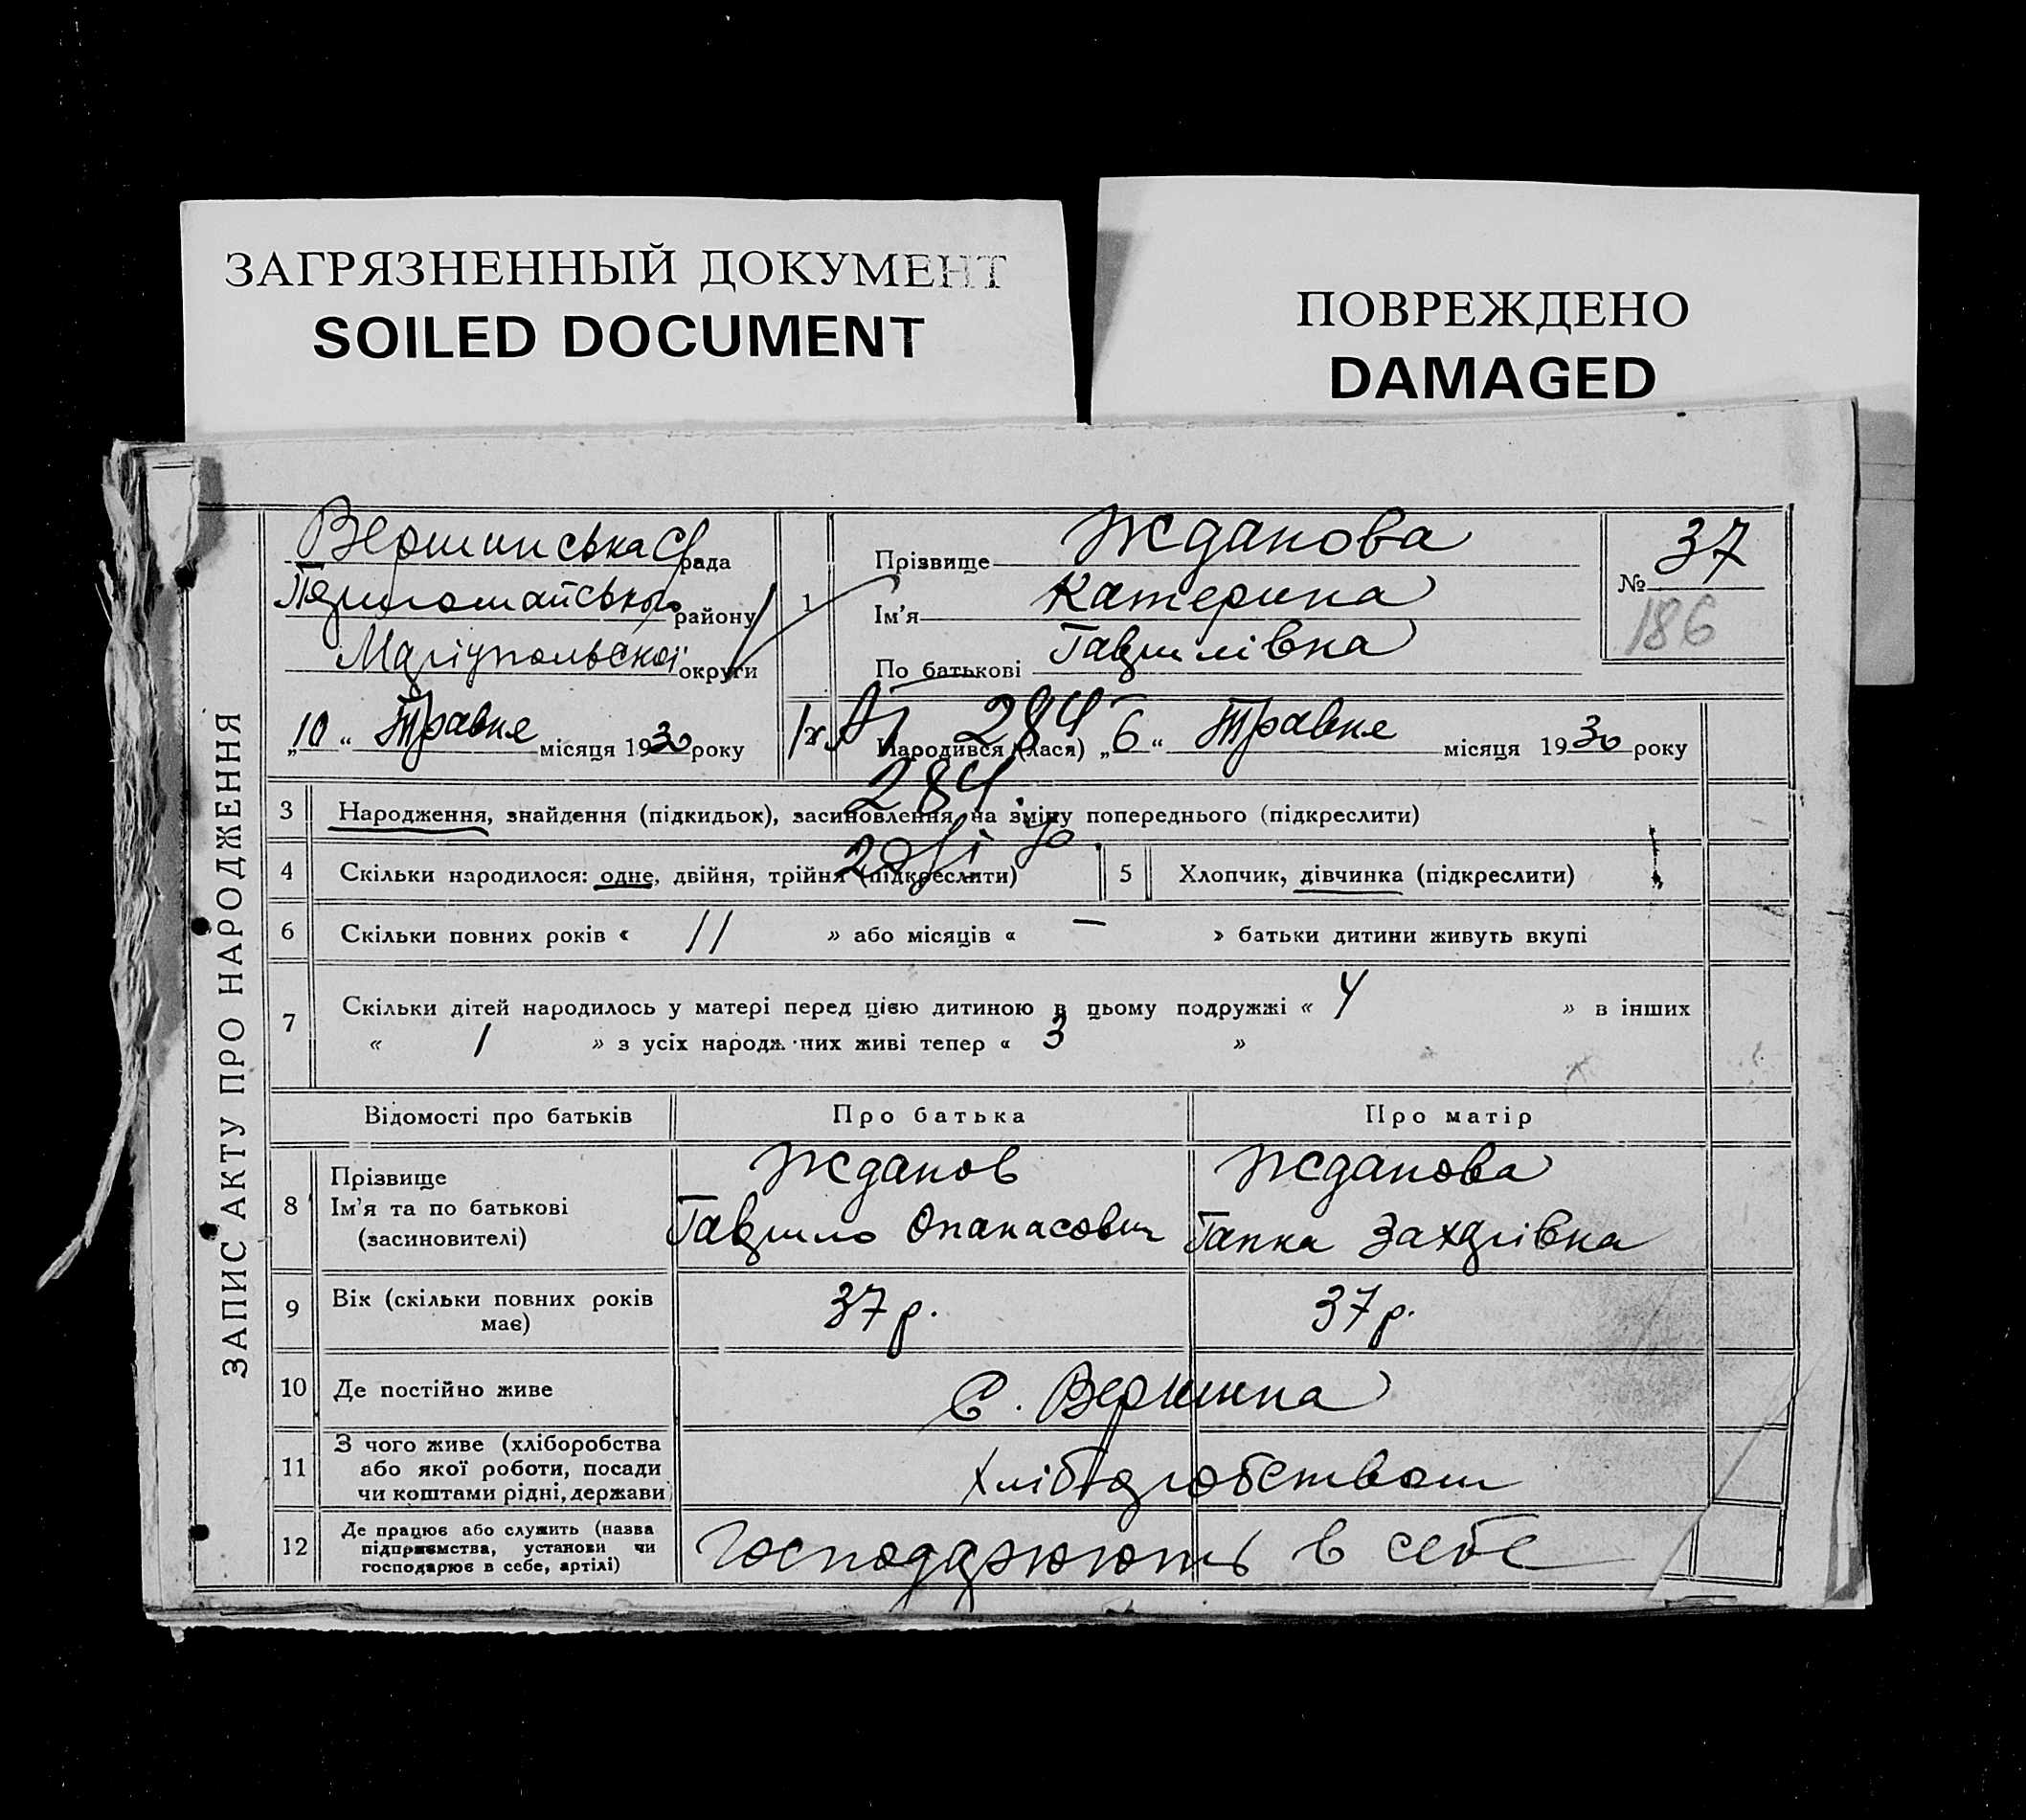 ЗАГРЯЗНЕННЫЙ ДОКУМЕНТ
SOILED DOCUMENT
ПОВРЕЖДЕНО
DAMAGED
ЗАПИС АКТУ ПРО НАРОДЖЕННЯ
Вершинська с/рада
Першомайського району
Маріупольської округи
„10“ Травня місяця 1930 року
1
Прізвище Жданова
Ім'я Катерина
По батькові Гаврилівна
№ 37
186
284
Народився (лася) „6“ Травня місяця 1930 року
284
3 Народження, знайдення (підкидьок), засиновлення, на зміну попереднього (підкреслити)
4 Скільки народилося: одне, двійня, трійня (підкреслити)
5 Хлопчик, дівчинка (підкреслити)
6 Скільки повних років « 11 » або місяців « – » батьки дитини живуть вкупі
7 Скільки дітей народилось у матері перед цією дитиною в цьому подружжі « 4 » в інших
« 1 » з усіх народж них живі тепер « 3 »
Відомості про батьків Про батька Про матір
8 Прізвище
Ім'я та по батькові
(засиновителі)
Жданов
Гаврило Опанасович
Жданова
Ганна Захарівна
9 Вік (скільки повних років
має)
37 р. 37 р.
10 Де постійно живе С. Вершина
11 З чого живе (хліборобства
або якої роботи, посади
чи коштами рідні, держави
хліборобством
12 Де працює або служить (назва
підприємства, установи чи
господарює в себе, артілі)
господарюють в себе